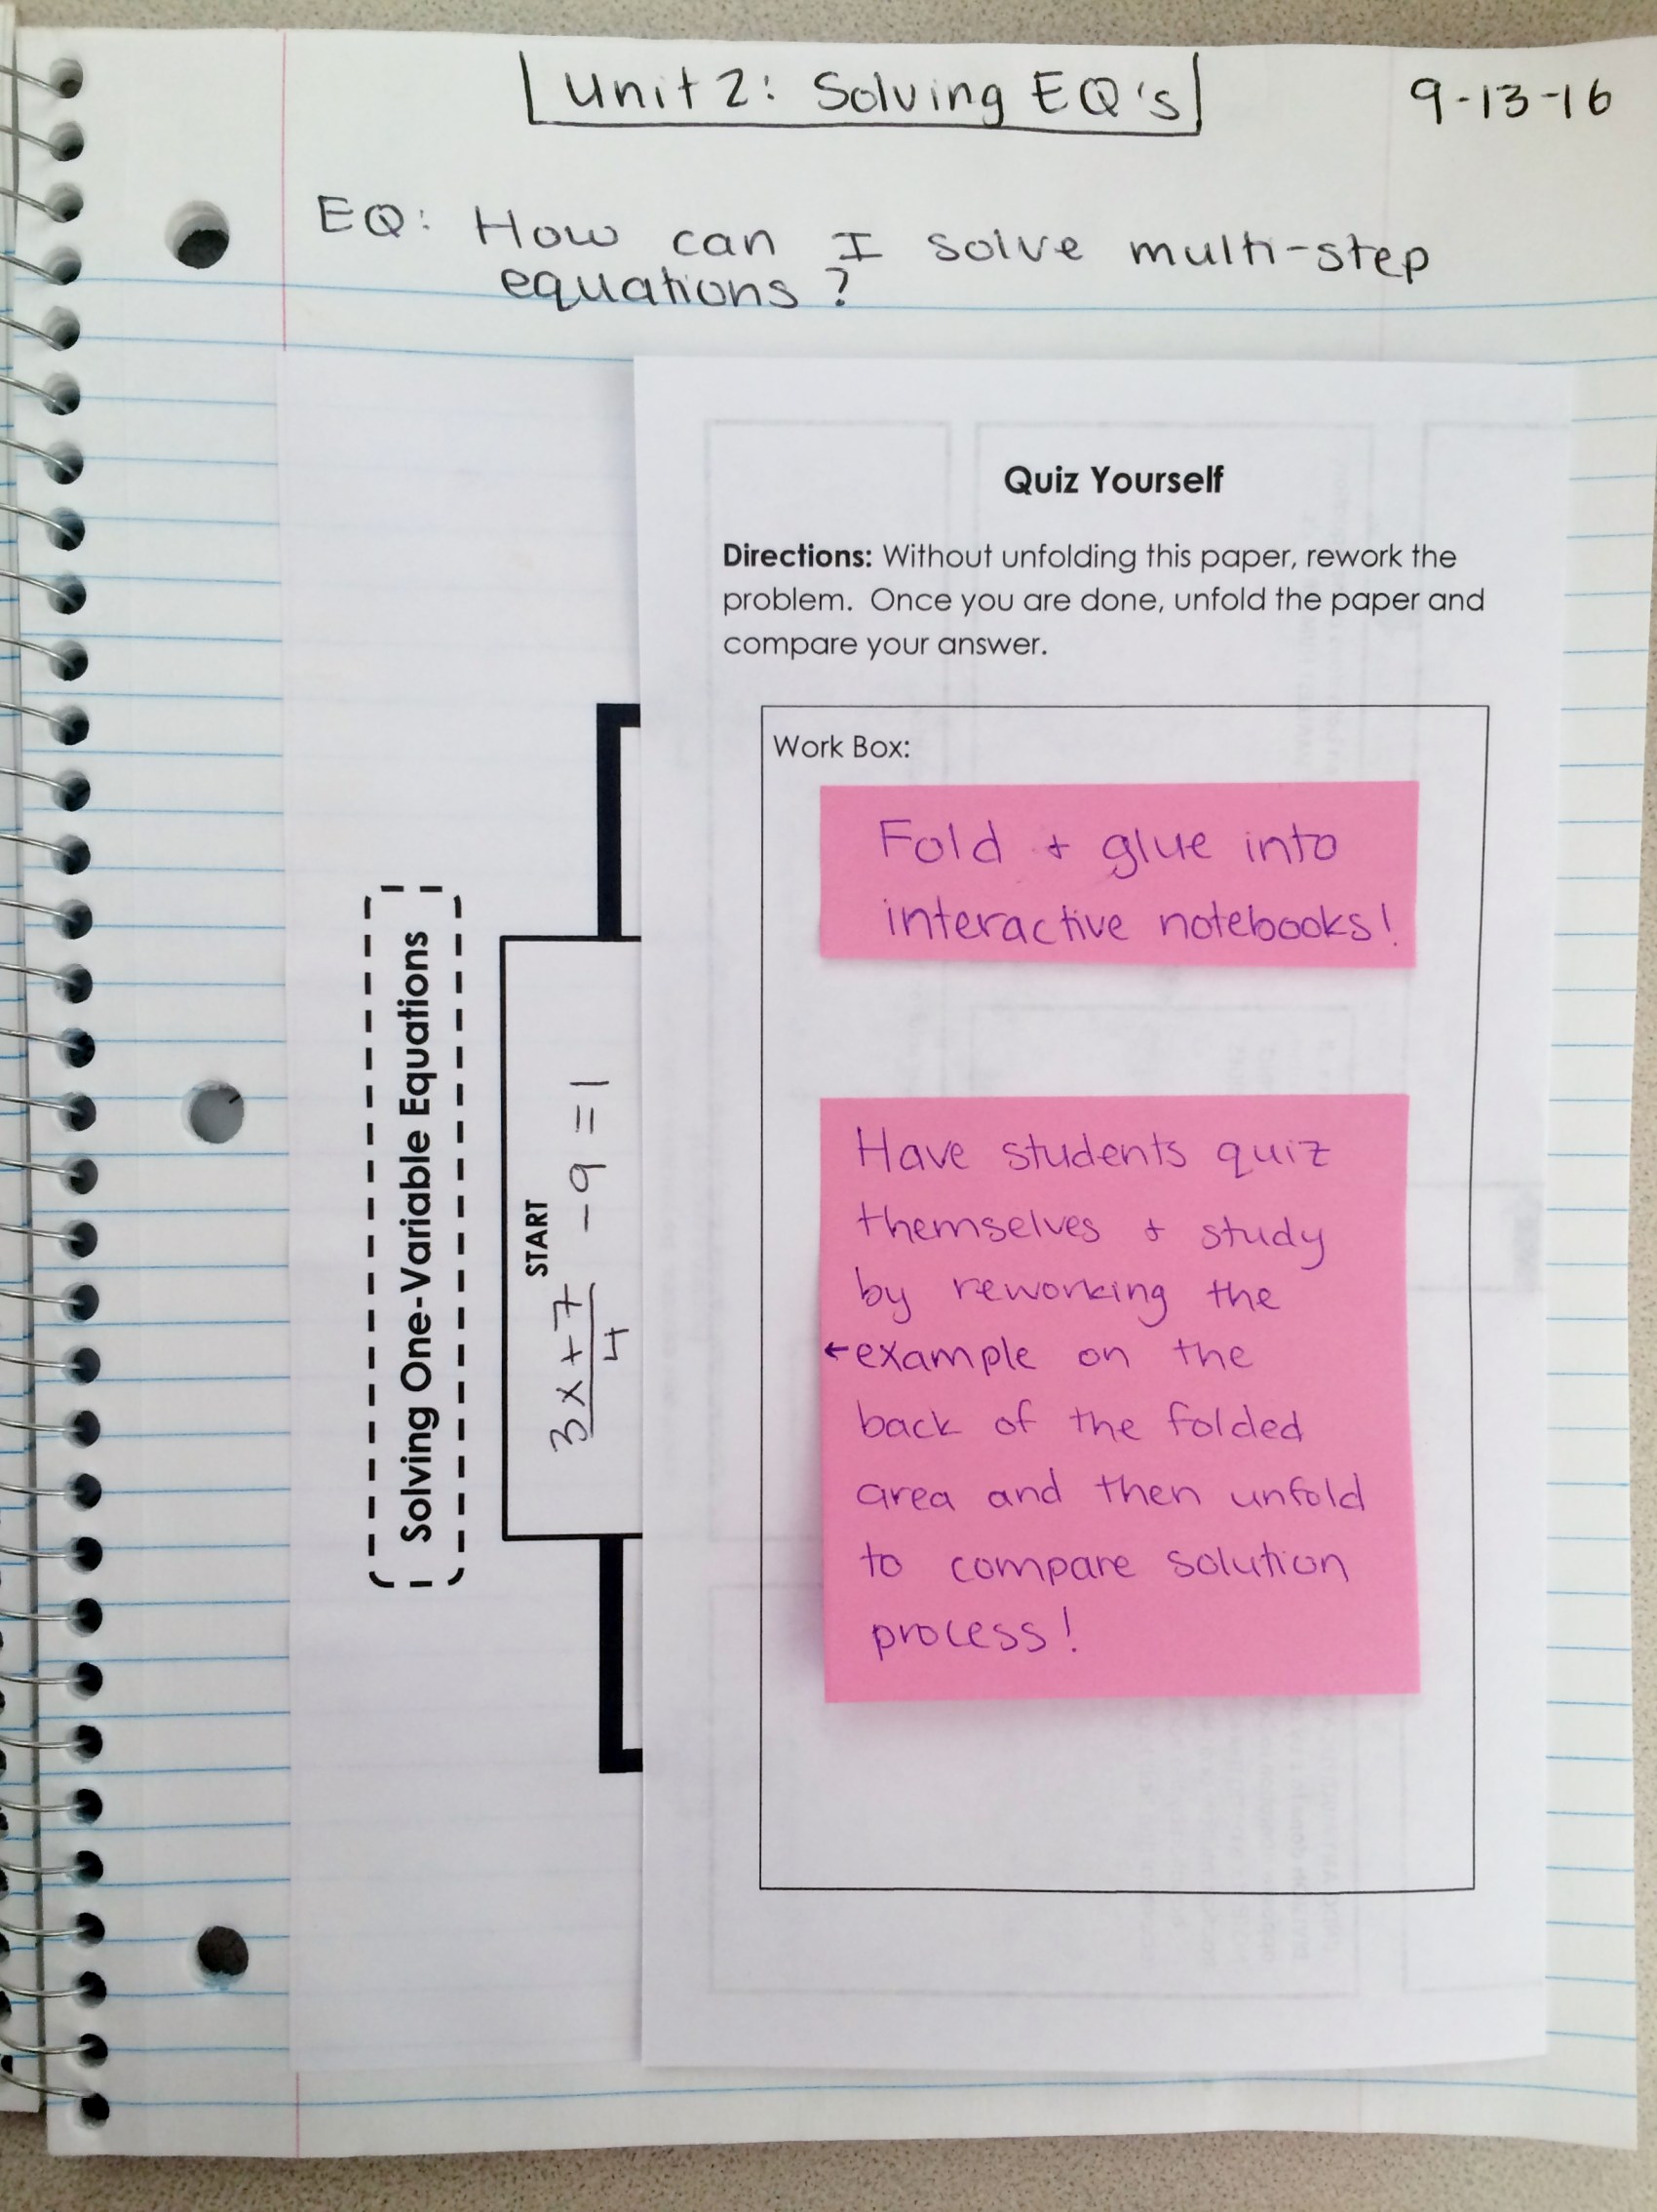 Unit 2: Solving EQ's
9-13-16
EQ: How can I solve multi-step
equations?
Solving One-Variable Equations
START
3x+7
4
-9=1
Quiz Yourself
Directions: Without unfolding this paper, rework the
problem. Once you are done, unfold the paper and
compare your answer.
Work Box:
Fold + glue into
interactive notebooks!
Have students quiz
themselves + study
by reworking the
←example on the
back of the folded
area and then unfold
to compare solution
process!